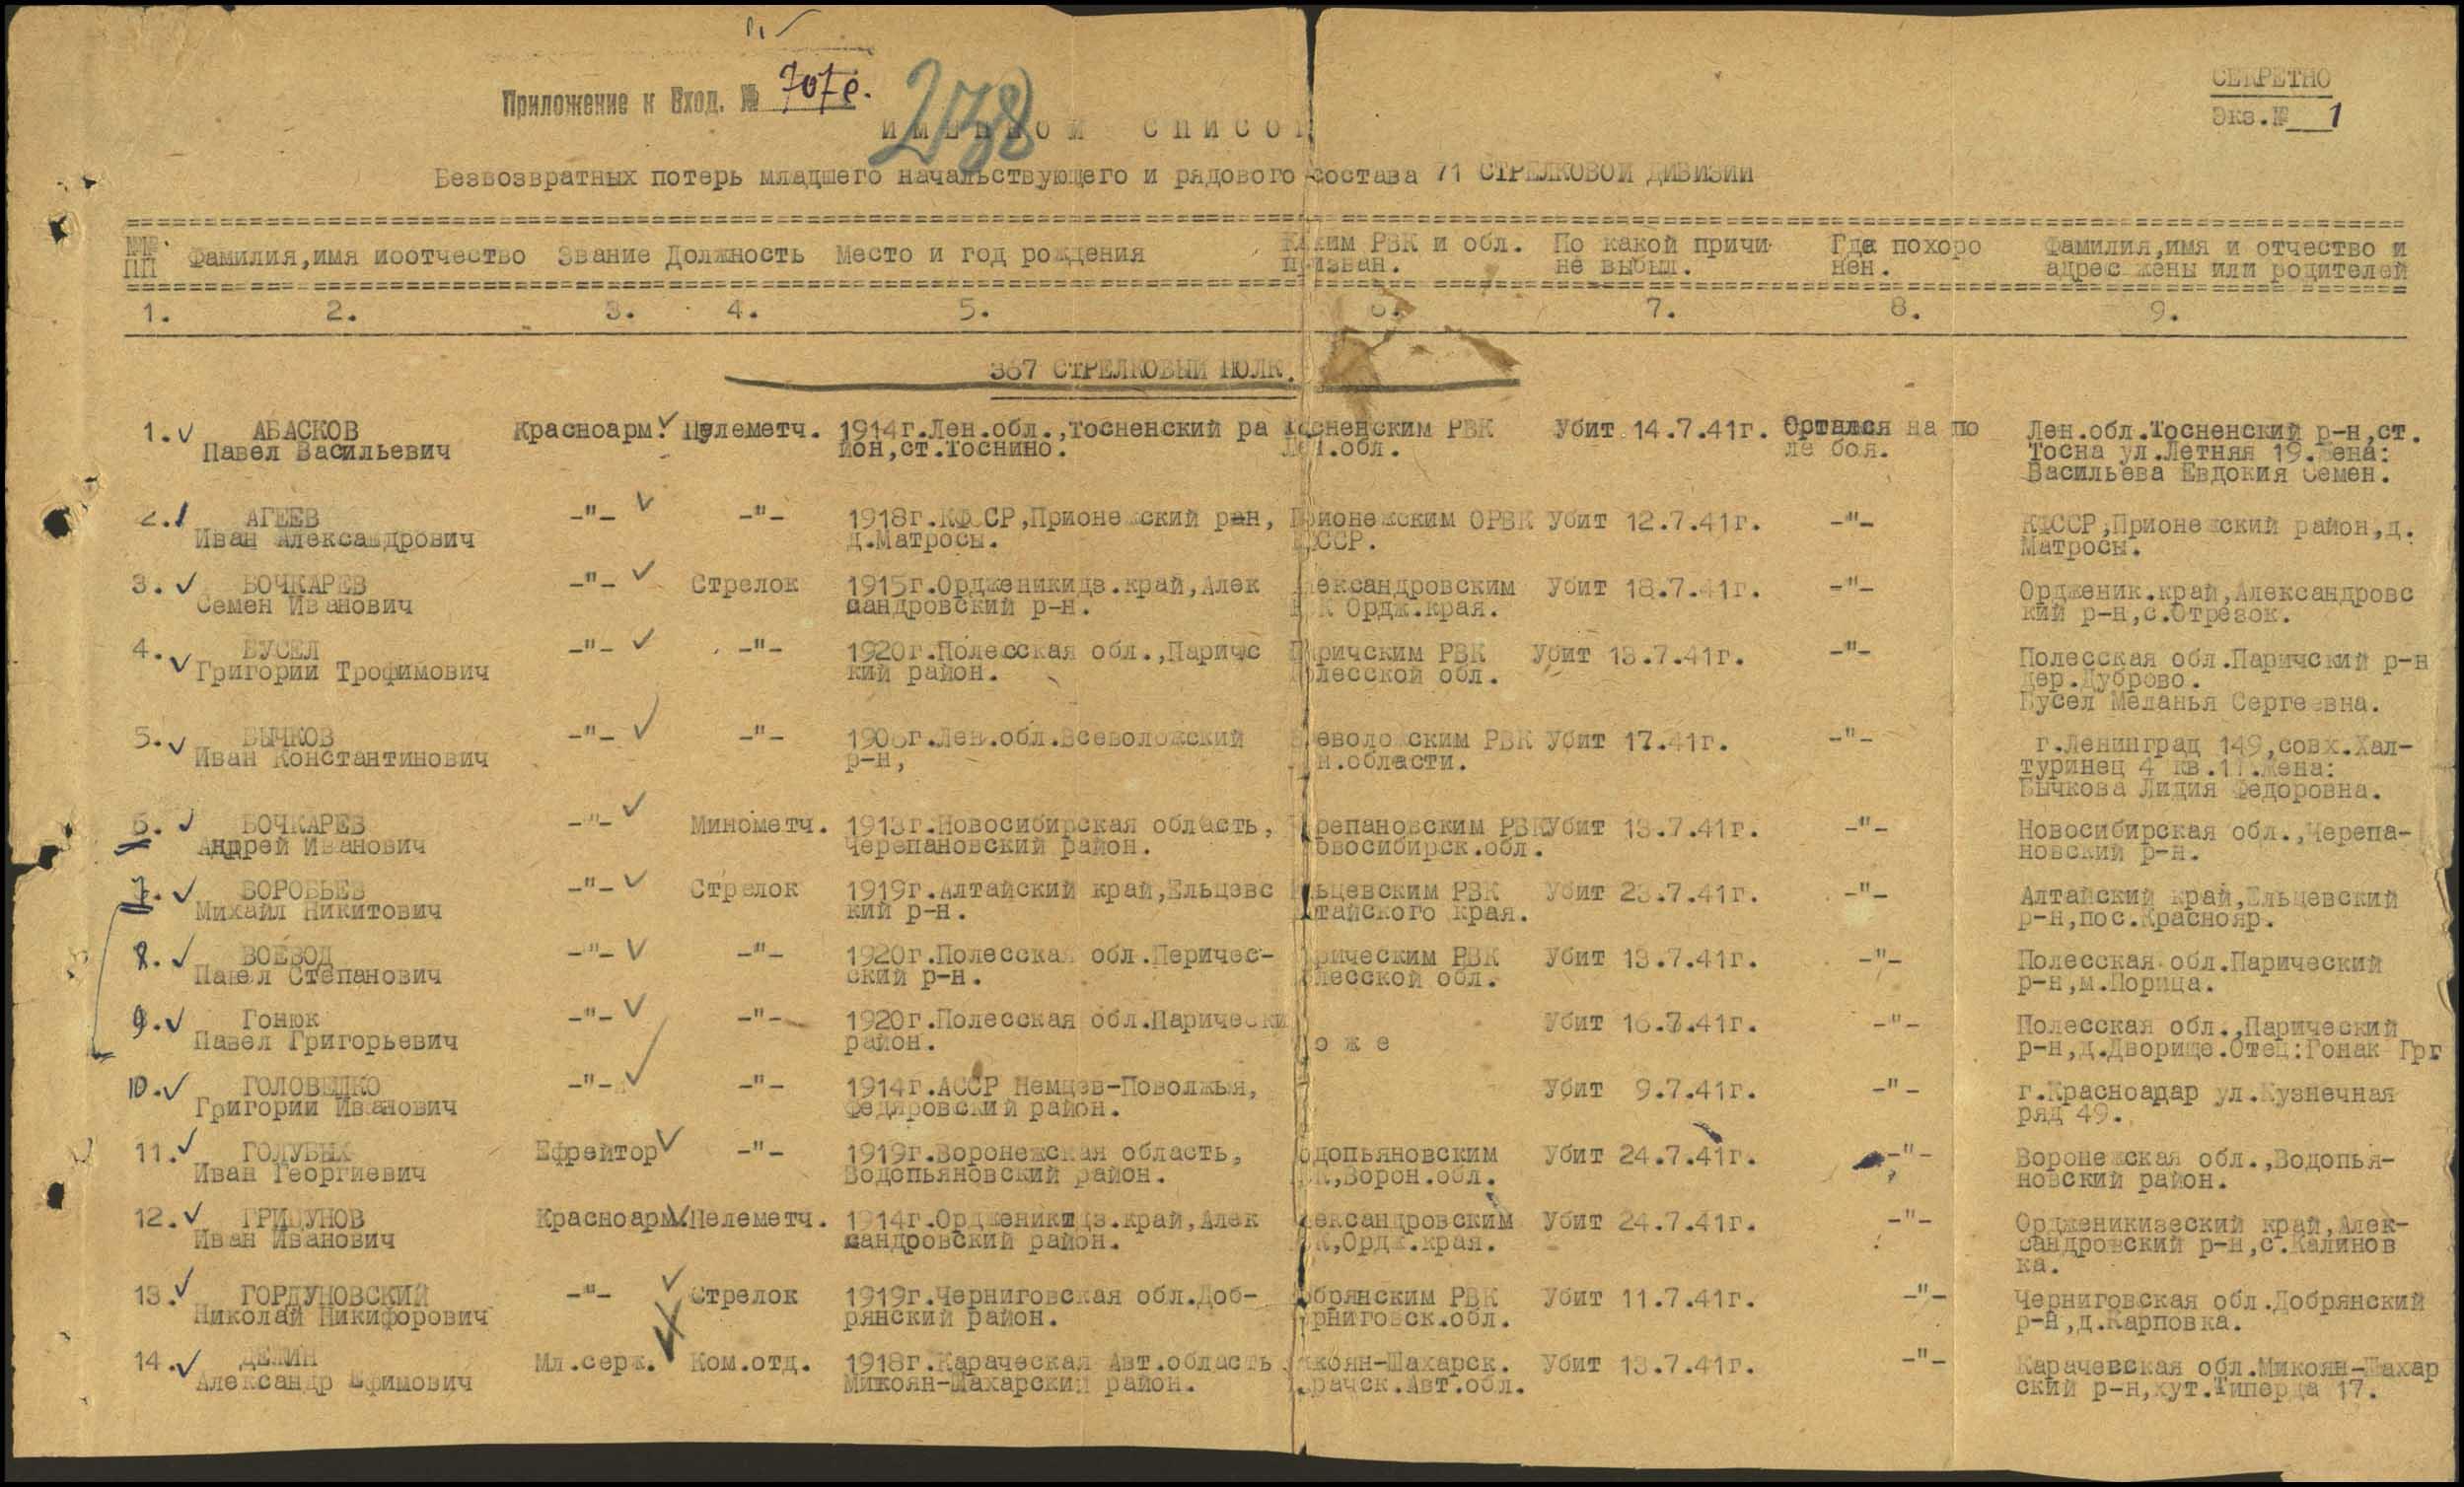 Приложение к Вход. № 707с.
238
СЕКРЕТНО
Экз.№ 1
ИМЕННОЙ СПИСОК
Безвозвратных потерь младшего начальствующего и рядового состава 71 СТРЕЛКОВОЙ ДИВИЗИИ
№№ ПП Фамилия,имя иоотчество Звание Должность Место и год рождения Каким РВК и обл. призван. По какой причи не выбыл. Где похоро нен. Фамилия,имя и отчество и адрес жены или родителей
1. 2. 3. 4. 5. 6. 7. 8. 9.
367 СТРЕЛКОВЫЙ ПОЛК.
1. АБАСКОВ Красноарм. Пулеметч. 1914г.Лен.обл.,Тосненский ра Тосненским РВК Убит 14.7.41г. Остался на по Лен.обл.Тосненский р-н,ст.
Павел Васильевич йон,ст.Тоснино. Лен.обл. ле боя. Тосна ул.Летняя 19.Жена:
Васильева Евдокия Семен.
2. АГЕЕВ -"- -"- 1918г.КФССР,Прионежский ран, Прионежским ОРВК Убит 12.7.41г. -"- КФССР,Прионежский район,д.
Иван Александрович д.Матросы. КФССР. Матросы.
3. БОЧКАРЕВ -"- Стрелок 1915г.Ордженикидз.край,Алек Александровским Убит 18.7.41г. -"- Ордженик.край,Александровс
Семен Иванович сандровский р-н. РВК Ордж.края. кий р-н,с.Отрезок.
4. БУСЕЛ -"- -"- 1920г.Полесская обл.,Паричс Паричским РВК Убит 13.7.41г. -"- Полесская обл.Паричский р-н
Григорий Трофимович кий район. Полесской обл. дер.Дуброво.
Бусел Меланья Сергеевна.
5. БЫЧКОВ -"- -"- г.Лен.обл.Всеволожский Всеволожским РВК Убит 17.41г. -"- г.Ленинград 149,совх.Хал-
Иван Константинович р-н, Лен.области. туринец 4 кв.11.Жена:
Бычкова Лидия Федоровна.
6. БОЧКАРЕВ -"- Минометч. 1913г.Новосибирская область, Черепановским РВК Убит 13.7.41г. -"- Новосибирская обл.,Черепа-
Андрей Иванович Черепановский район. Новосибирск.обл. новский р-н.
7. ВОРОБЬЕВ -"- Стрелок 1919г.Алтайский край,Ельцевс Ельцевским РВК Убит 23.7.41г. -"- Алтайский край,Ельцевский
Михайл Никитович кий р-н. Алтайского края. р-н,пос.Краснояр.
8. ВОЕВОД -"- -"- 1920г.Полесская обл.Перичес- Парическим РВК Убит 13.7.41г. -"- Полесская обл.Парический
Павел Степанович ский р-н. Полесской обл. р-н,м.Порица.
9. Гонюк -"- -"- 1920г.Полесская обл.Парически Убит 16.7.41г. -"- Полесская обл.,Парический
Павел Григорьевич район. То же р-н,д.Дворище.Отец:Гонак Грг
10. ГОЛОВЕШКО -"- -"- 1914г.АССР Немцев-Поволжья, Убит 9.7.41г. -"- г.Красноадар ул.Кузнечная
Григорий Иванович Федяровский район. ряд 49.
11. ГОЛУБЫХ Ефрейтор -"- 1919г.Воронежская область, Водопьяновским Убит 24.7.41г. -"- Воронежская обл.,Водопья-
Иван Георгиевич Водопьяновский район. РВК,Ворон.обл. новский район.
12. ГРИЦУНОВ Красноарм. Пелеметч. 1914г.Ордженикидз.край,Алек Александровским Убит 24.7.41г. -"- Ордженикизеский край,Алек-
Иван Иванович сандровский район. РВК,Ордж.края. сандровский р-н,с.Калинов
ка.
13. ГОРДУНОВСКИЙ -"- Стрелок 1919г.Черниговская обл.Доб- Добрянским РВК Убит 11.7.41г. -"- Черниговская обл.Добрянский
Николай Никифорович рянский район. Черниговск.обл. р-н,д.Карповка.
14. ДЕМИН Мл.серж. Ком.отд. 1918г.Карачаеская Авт.область Микоян-Шахарск. Убит 13.7.41г. -"- Карачевская обл.Микоян-Шахар
Александр Ефимович Микоян-Шахарский район. Карачск.Авт.обл. ский р-н,хут.Типерда 17.